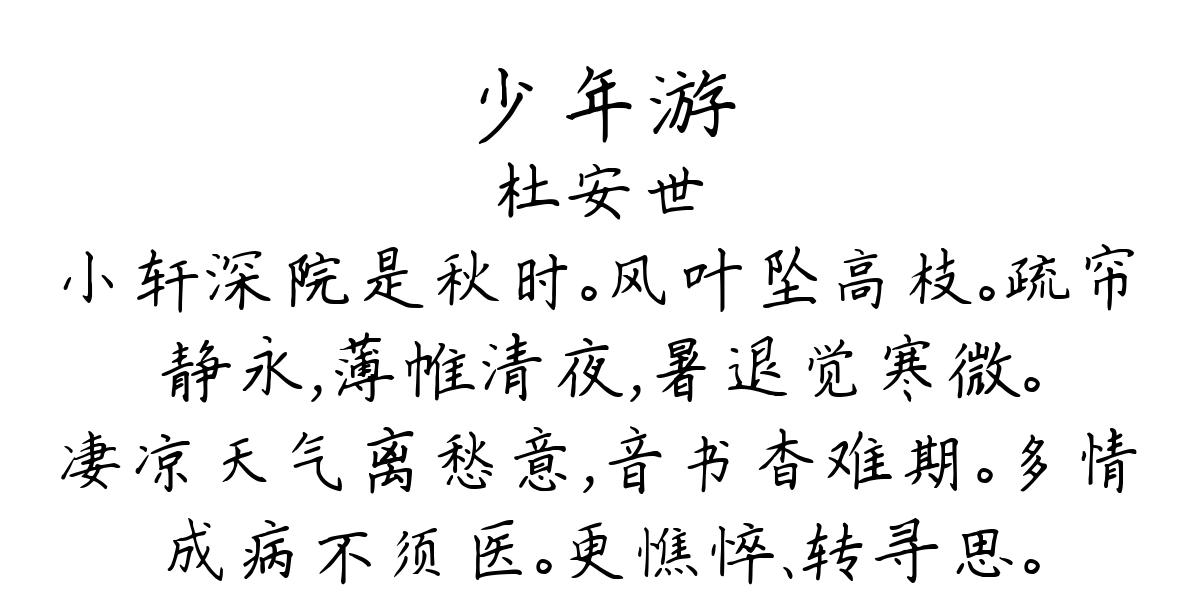 少年游
杜安世
小轩深院是秋时。风叶坠高枝。疏帘
静永,薄帷清夜,暑退觉寒微。
凄凉天气离愁意,音书杳难期。多情
成病不须医。更憔悴、转寻思。